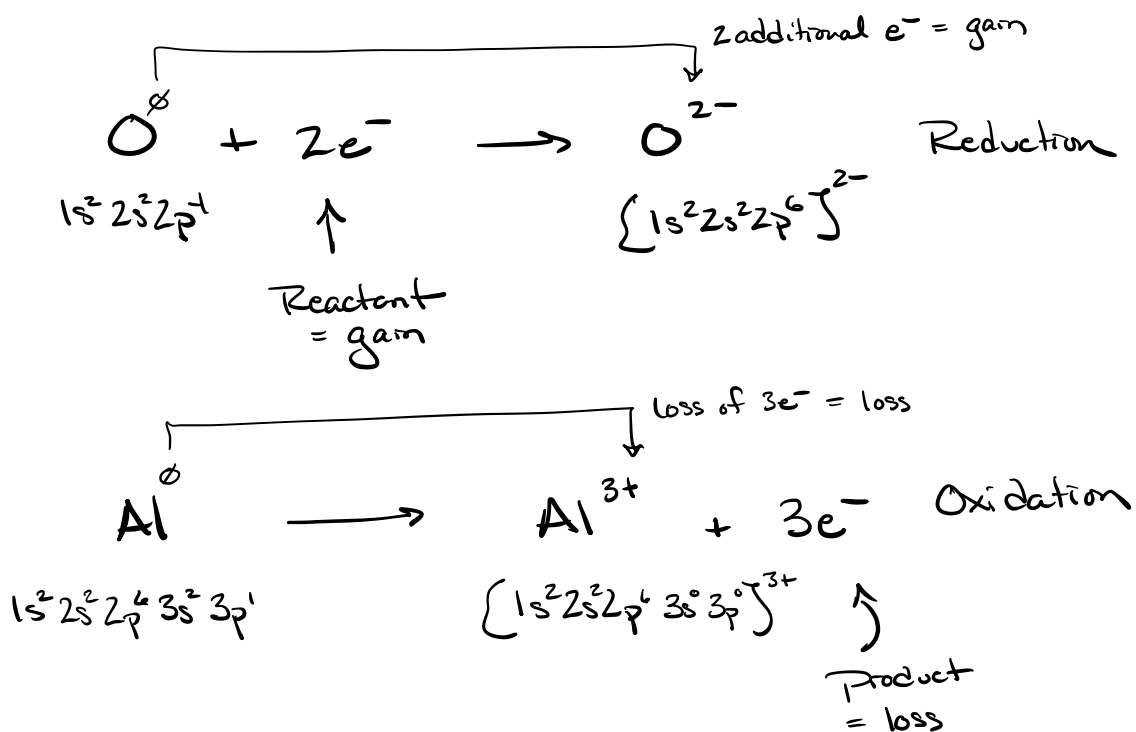 2 additional e⁻ = gain
O⁰ + 2e⁻ → O²⁻ Reduction
1s² 2s² 2p⁴ [1s² 2s² 2p⁶]²⁻
↑
Reactant
= gain
loss of 3e⁻ = loss
Al⁰ → Al³⁺ + 3e⁻ Oxidation
1s² 2s² 2p⁶ 3s² 3p¹ [1s² 2s² 2p⁶ 3s⁰ 3p⁰]³⁺
Product
= loss